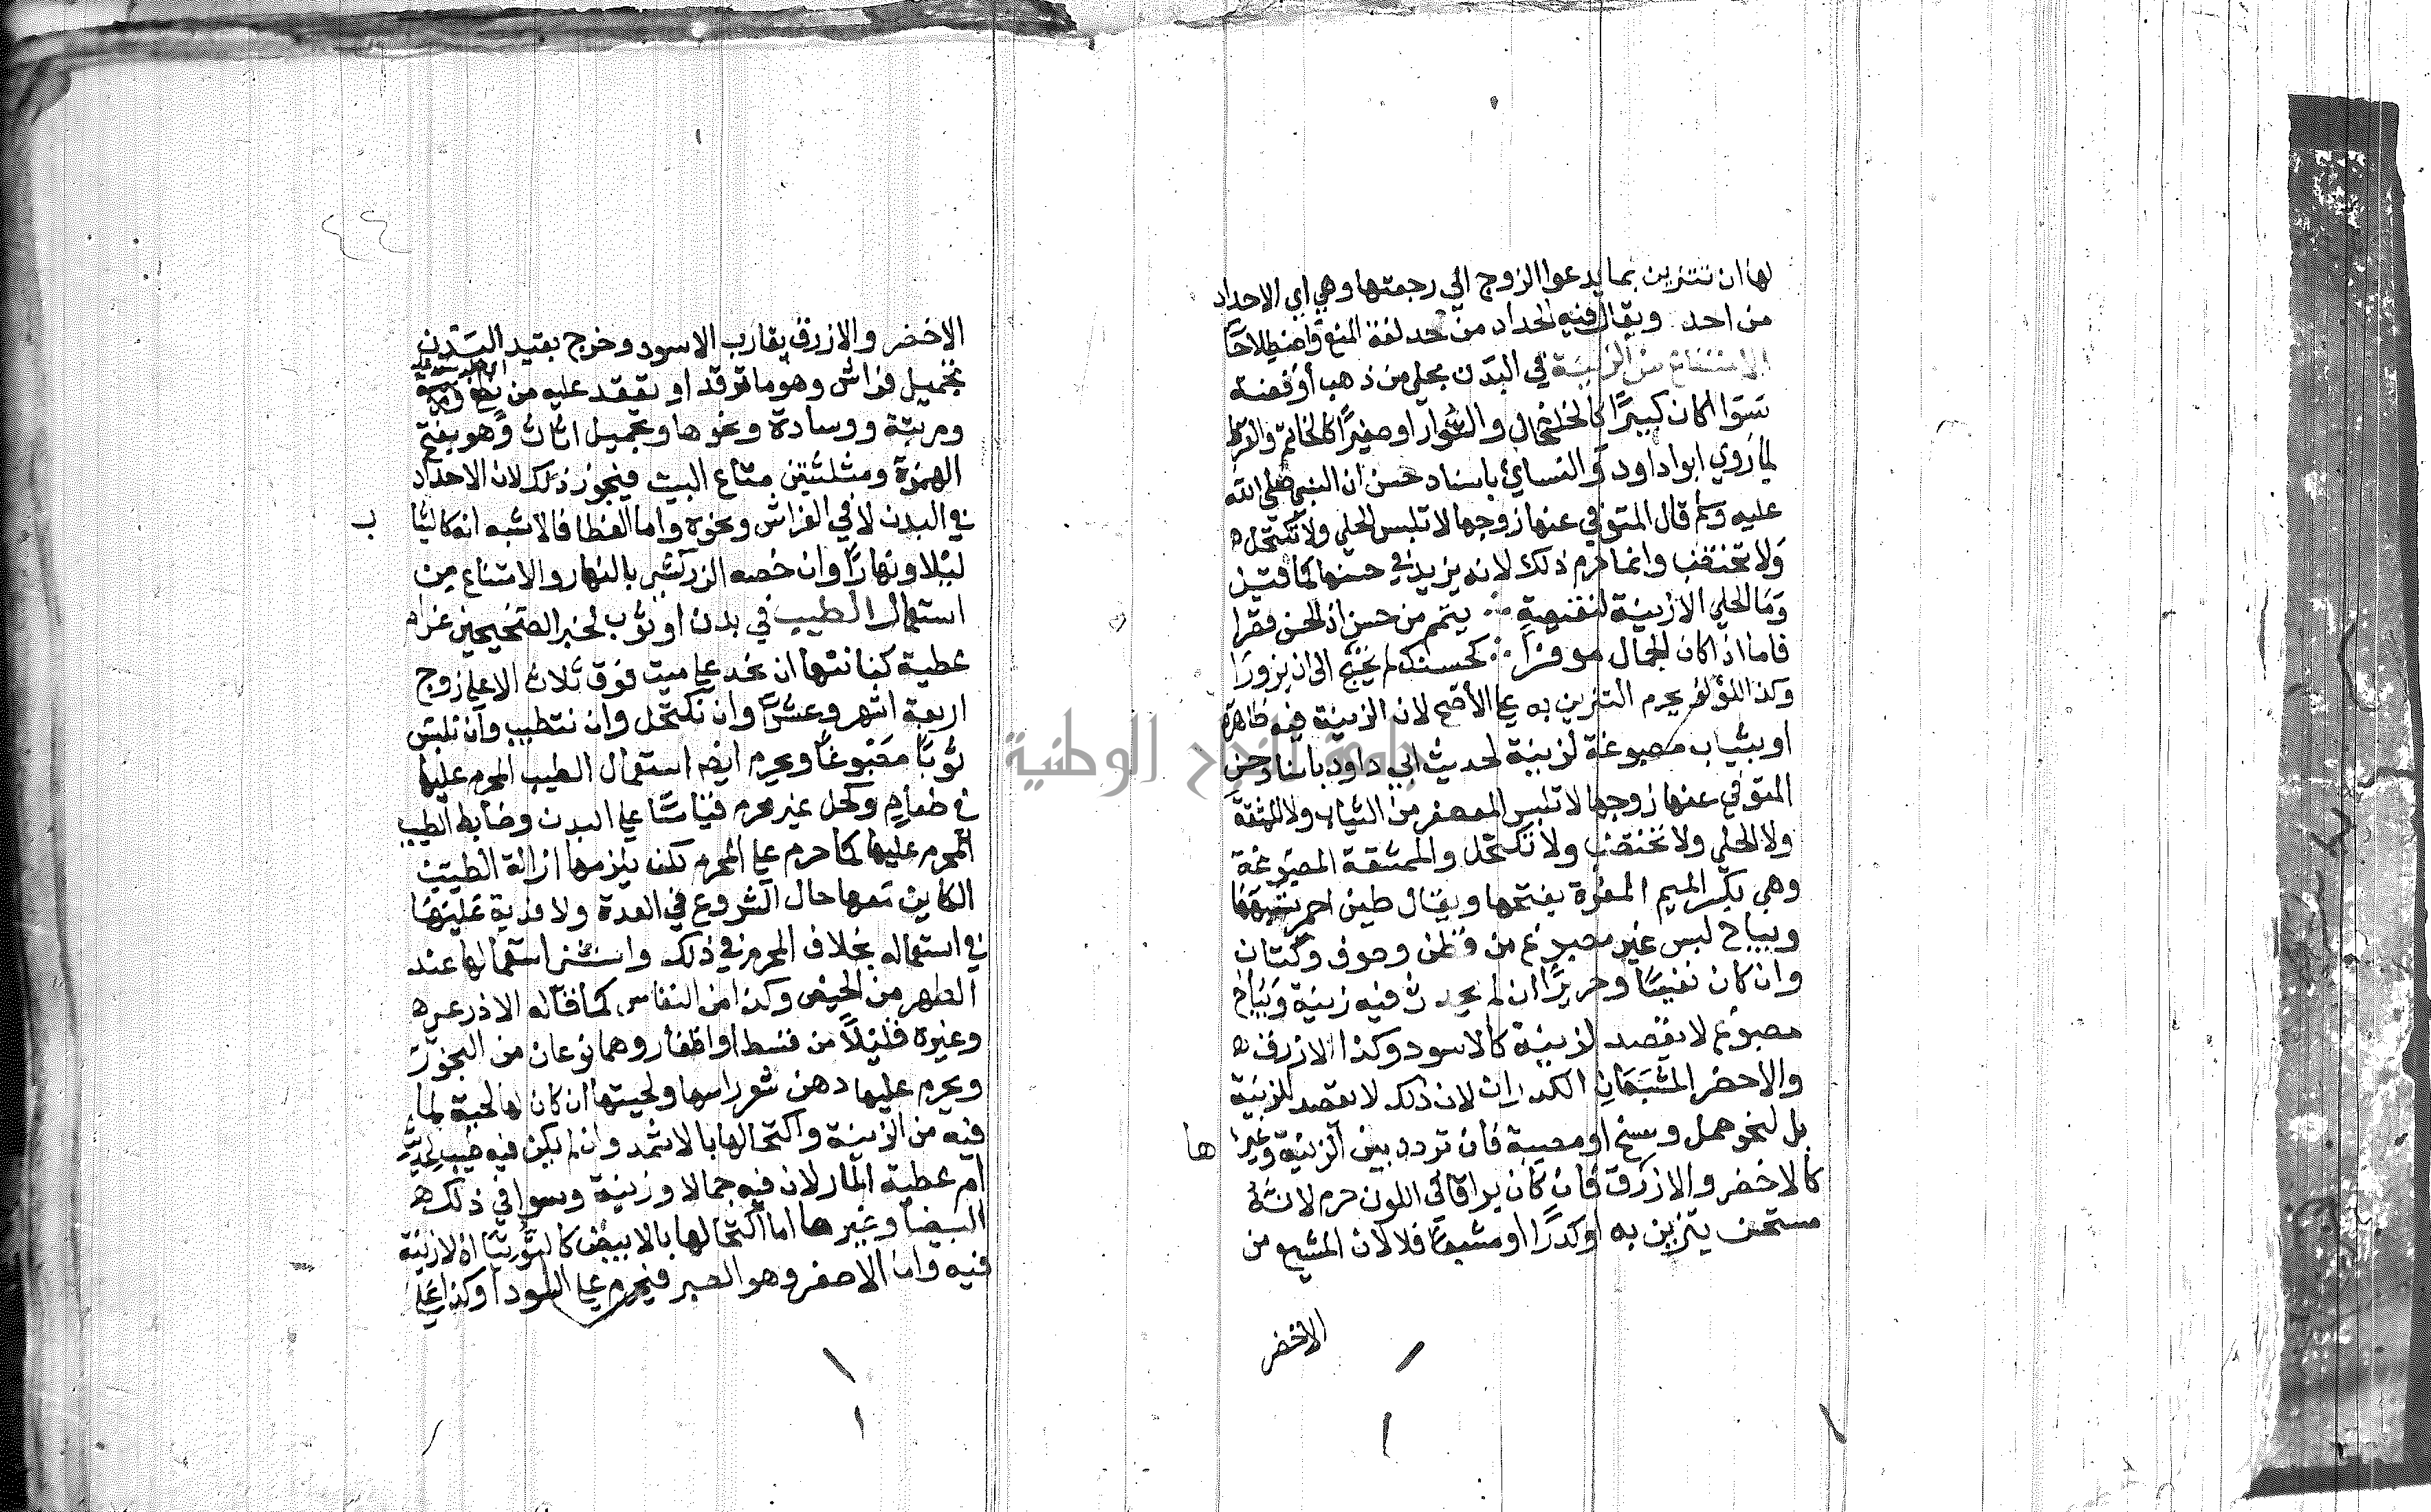 لها ان تتزين بما يدعوا الزوج الي رجعتها وهي اي الاحداد
من احد ويقال فيه الحداد من حد لغة المنع واصطلاحا
الامتناع من الزينة في البدن بحلي من ذهب أو فضة
سوا كان كبيرًا كالخلخال والسوار او صغيرًا كالخاتم والقرط
لما روي ابوا داود والنسائ باسناد حسن ان النبي صلي الله
عليه وسلم قال المتوفي عنها زوجها لا تلبس الحلي ولا تكتحل ه
ولا تختضب وانما حرم ذلك لانه يزيد في حسنها كما قيل
وما الحلي الا زينة لنقيصة ∴ يتمم من حسن اذا الحسن قصرا
فاما اذا كان الجمال موفرا ∴ كحسنك لم يحتج الى ان يزورا
وكذا اللؤلؤ يحرم التزين به علي الأصح لان الزينة فيه ظاهرة
او بثياب مصبوغة لزينة لحديث ابي داود باسناد حسن
المتوفي عنها زوجها لا تلبس المعصفر من الثياب ولا الممشقة
ولا الحلي ولا تختضب ولا تكتحل والممشقة المصبوغة
وهي بكسر الميم المغرة بفتحها ويقال طين احمر يشبهها
ويباح لبس غير مصبوغ من قطن وصوف وكتان
وان كان نفيسًا وحريرًا ان لم يحدث فيه زينة ويباح
مصبوغ لا يقصد لزينة كالاسود وكذا الازرق ه
والاخضر المشبعان الكدران لان ذلك لا يقصد للزينة
بل لنحو حمل وسخ او مصيبة فان تردد بين الزينة وغيرا
ها
كالاخضر والازرق فان كان براقا في اللون حرم لانه
مستحسن يتزين به او كدرًا او مشبعًا فلا لان المشبع من
الاخضر
٤٤
الاخضر والازرق يقارب الاسود وخرج بقيد البدن
تجميل فراش وهو ما ترقد او تقعد عليه من نطع
ومرتبة ووسادة ونحوها وتجميل اثاث وهو بفتح
الهمزة ومثلثتين متاع البيت فيجوز ذلك لان الاحداد
في البدن لا في الفراش ونحوه واما الغطا فالاشبه انه كالثيا
ب
ليلا ونهارًا وان خصه الزركشي بالنهار والامتناع من
استعمال الطيب في بدن او ثوب لخبر الصحيحين عن ام
عطية كنا ننها ان نحد علي ميت فوق ثلاث الا علي زوج
اربعة اشهر وعشرًا وان نكتحل وان نتطيب وان نلبس
ثوبًا مصبوغًا ويحرم ايضا استعمال الطيب المحرم عليها
في طعام وكحل غير محرم قياسًا علي البدن وضابط الطيب
المحرم عليها كما حرم علي المحرم لكن يلزمها ازالة الطيب
الكاين معها حال الشروع في العدة ولا فدية عليها
في استعماله بخلاف المحرم في ذلك واستثنى استعمالها عند
الطهر من الحيض وكذا من النفاس كما قاله الاذرعي ه
وغيره قليلًا من قسط او اظفار وهما نوعان من البخور
ويحرم عليها دهن شعر راسها ولحيتها ان كان لها لحية لما
فيه من الزينة واكتحالها بالاثمد وان لم يكن فيه طيب لحديث
ام عطية المار لان فيه جمالا وزينة وسوا في ذلك ه
البيضا وغيرها اما اكتحالها بالابيض كالتوتيا اذ لا زينة
فيه واما الاصفر وهو الصبر فيحرم علي السودا وكذا علي